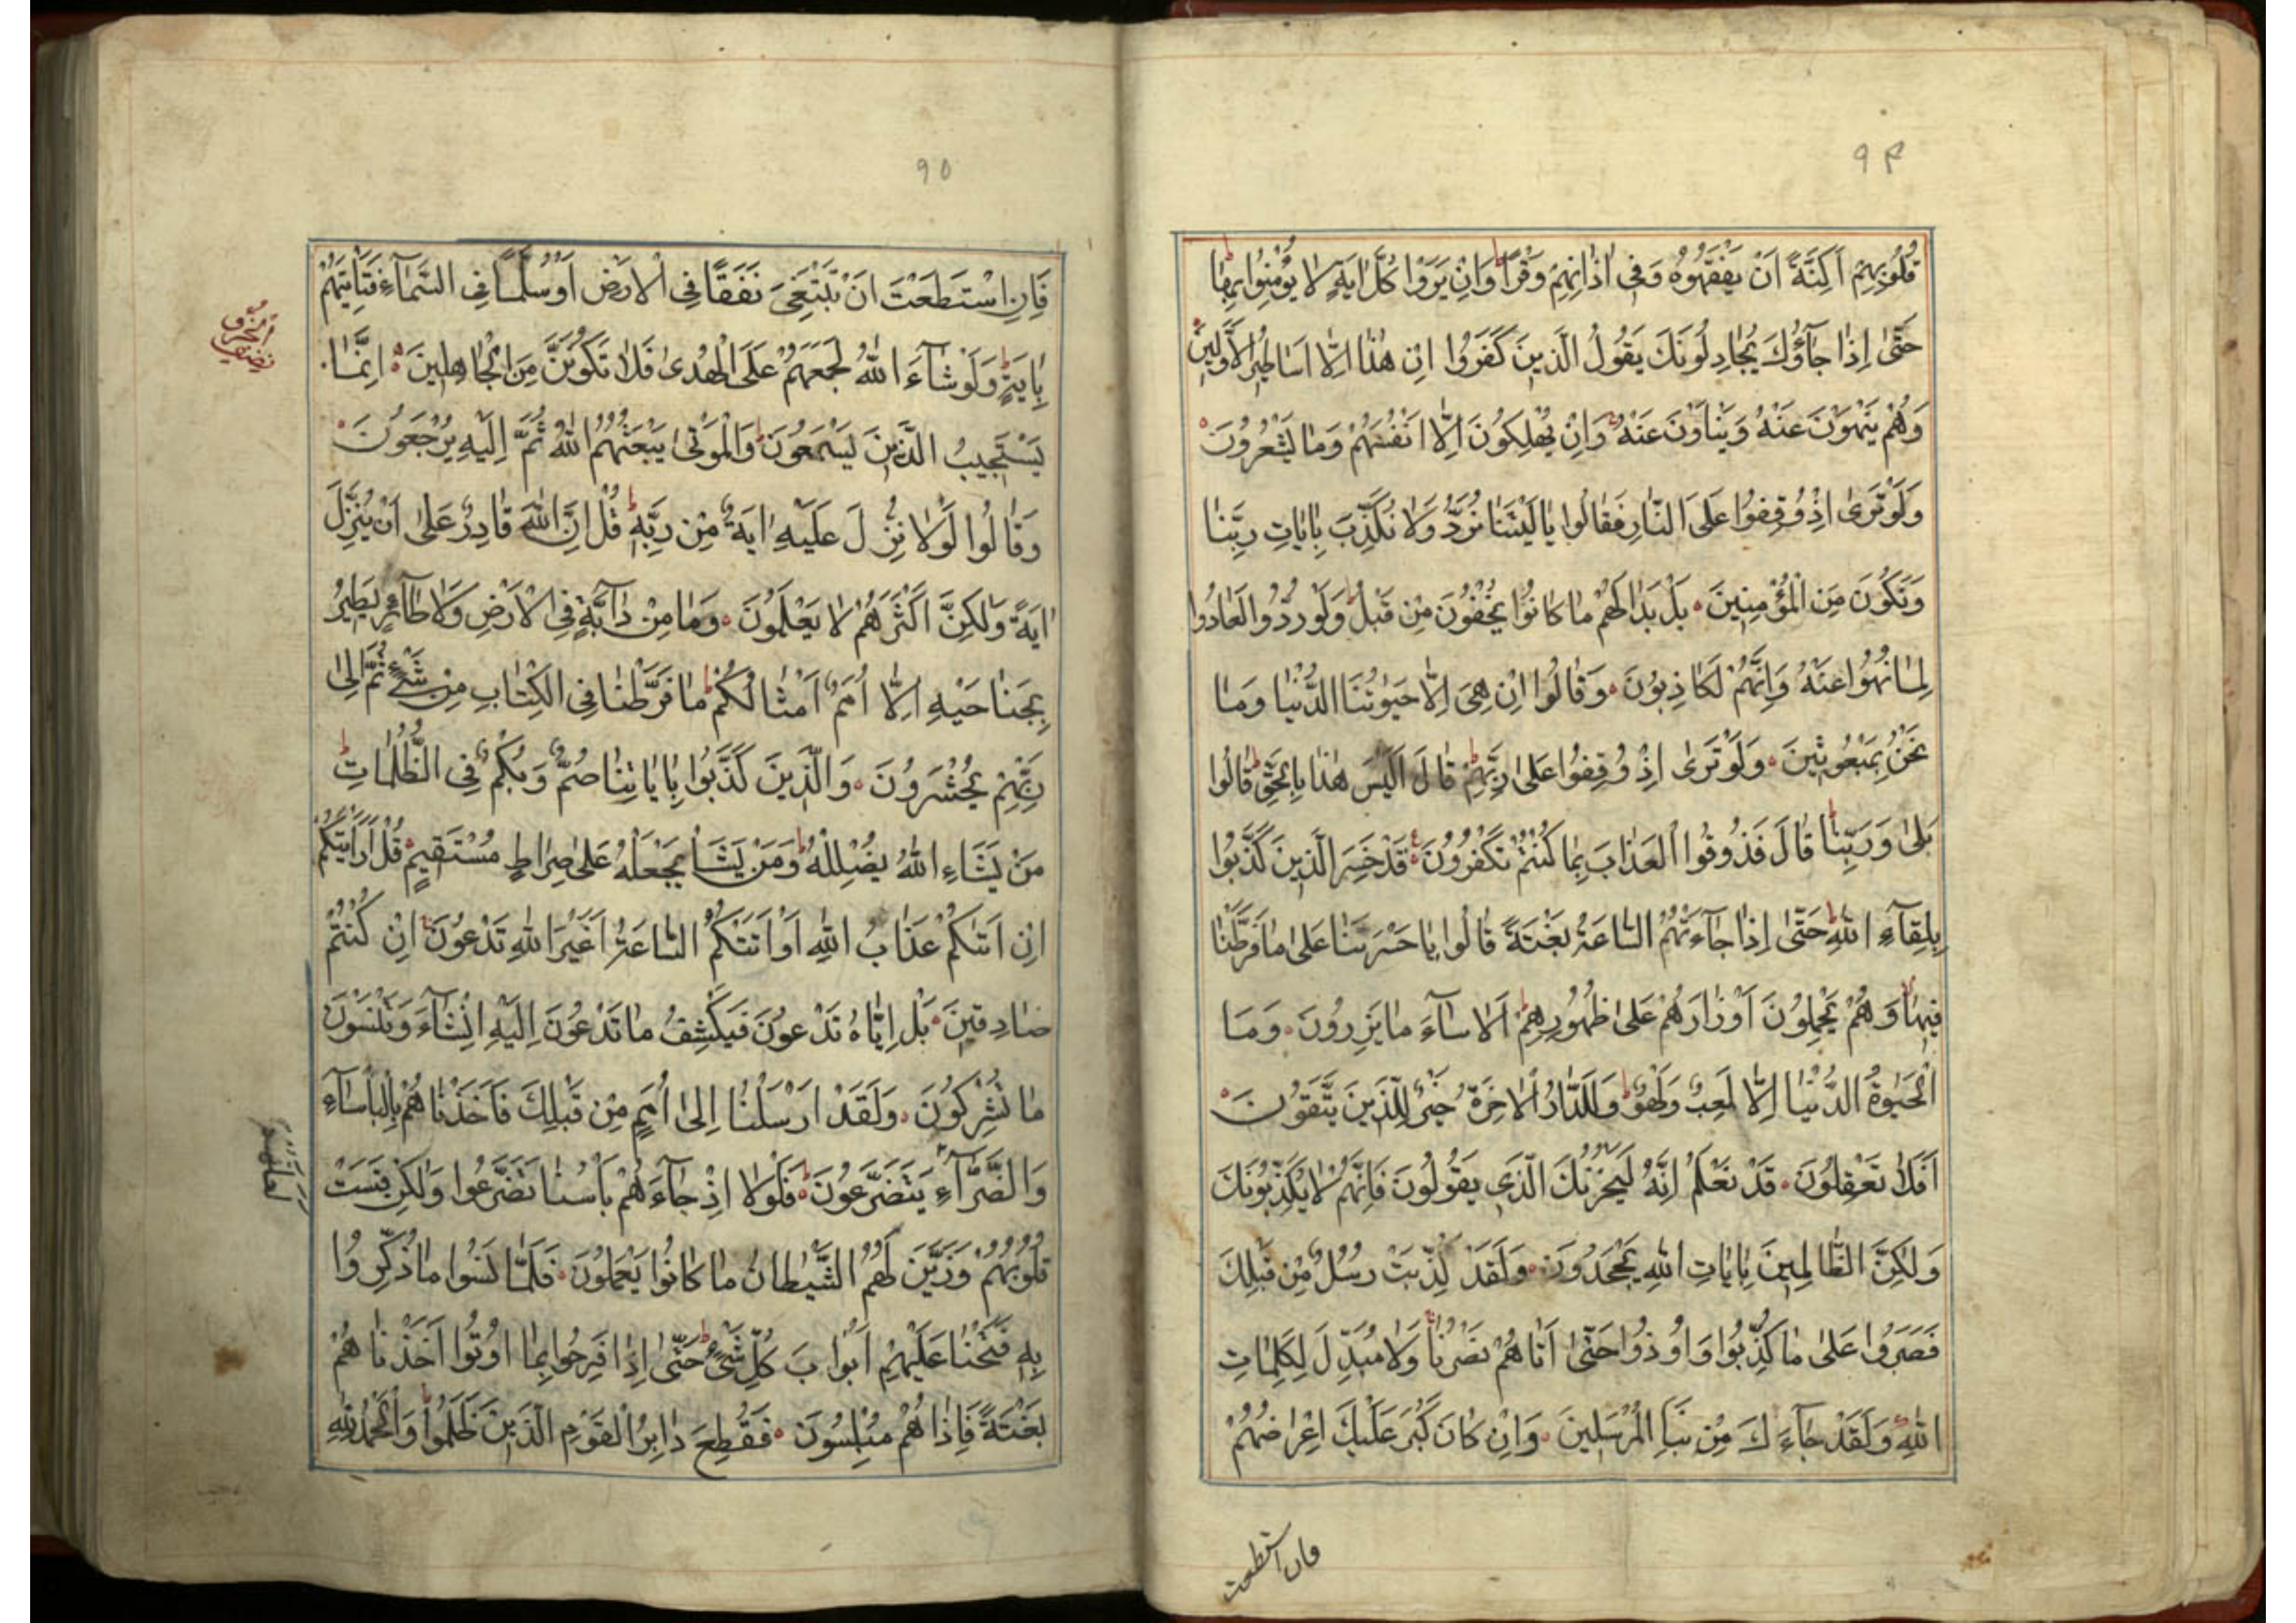 ٩٤
قُلُوبِهِمْ اَكِنَّةً اَنْ يَفْقَهُوهُ وَفِى اٰذَانِهِمْ وَقْرًا وَاِنْ يَرَوْا كُلَّ اٰيَةٍ لَا يُؤْمِنُوا بِهَا
حَتّٰى اِذَا جَآؤُكَ يُجَادِلُونَكَ يَقُولُ الَّذِينَ كَفَرُوا اِنْ هٰذَا اِلَّا اَسَاطِيرُ الْاَوَّلِينَ
وَهُمْ يَنْهَوْنَ عَنْهُ وَيَنْاَوْنَ عَنْهُ وَاِنْ يُهْلِكُونَ اِلَّا اَنْفُسَهُمْ وَمَا يَشْعُرُونَ
وَلَوْ تَرٰى اِذْ وُقِفُوا عَلَى النَّارِ فَقَالُوا يَا لَيْتَنَا نُرَدُّ وَلَا نُكَذِّبَ بِاٰيَاتِ رَبِّنَا
وَنَكُونَ مِنَ الْمُؤْمِنِينَ بَلْ بَدَا لَهُمْ مَا كَانُوا يُخْفُونَ مِنْ قَبْلُ وَلَوْ رُدُّوا لَعَادُوا
لِمَا نُهُوا عَنْهُ وَاِنَّهُمْ لَكَاذِبُونَ وَقَالُوا اِنْ هِىَ اِلَّا حَيٰوتُنَا الدُّنْيَا وَمَا
نَحْنُ بِمَبْعُوثِينَ وَلَوْ تَرٰى اِذْ وُقِفُوا عَلٰى رَبِّهِمْ قَالَ اَلَيْسَ هٰذَا بِالْحَقِّ قَالُوا
بَلٰى وَرَبِّنَا قَالَ فَذُوقُوا الْعَذَابَ بِمَا كُنْتُمْ تَكْفُرُونَ قَدْ خَسِرَ الَّذِينَ كَذَّبُوا
بِلِقَآءِ اللّٰهِ حَتّٰى اِذَا جَآءَتْهُمُ السَّاعَةُ بَغْتَةً قَالُوا يَا حَسْرَتَنَا عَلٰى مَا فَرَّطْنَا
فِيهَا وَهُمْ يَحْمِلُونَ اَوْزَارَهُمْ عَلٰى ظُهُورِهِمْ اَلَا سَآءَ مَا يَزِرُونَ وَمَا
الْحَيٰوةُ الدُّنْيَا اِلَّا لَعِبٌ وَلَهْوٌ وَلَلدَّارُ الْاٰخِرَةُ خَيْرٌ لِلَّذِينَ يَتَّقُونَ
اَفَلَا تَعْقِلُونَ قَدْ نَعْلَمُ اِنَّهُ لَيَحْزُنُكَ الَّذِى يَقُولُونَ فَاِنَّهُمْ لَا يُكَذِّبُونَكَ
وَلٰكِنَّ الظَّالِمِينَ بِاٰيَاتِ اللّٰهِ يَجْحَدُونَ وَلَقَدْ كُذِّبَتْ رُسُلٌ مِنْ قَبْلِكَ
فَصَبَرُوا عَلٰى مَا كُذِّبُوا وَاُوذُوا حَتّٰى اَتَاهُمْ نَصْرُنَا وَلَا مُبَدِّلَ لِكَلِمَاتِ
اللّٰهِ وَلَقَدْ جَآءَكَ مِنْ نَبَاِ الْمُرْسَلِينَ وَاِنْ كَانَ كَبُرَ عَلَيْكَ اِعْرَاضُهُمْ
فان استطعت
٩٥
فَاِنِ اسْتَطَعْتَ اَنْ تَبْتَغِىَ نَفَقًا فِى الْاَرْضِ اَوْ سُلَّمًا فِى السَّمَآءِ فَتَأْتِيَهُمْ
بِاٰيَةٍ وَلَوْ شَآءَ اللّٰهُ لَجَمَعَهُمْ عَلَى الْهُدٰى فَلَا تَكُونَنَّ مِنَ الْجَاهِلِينَ اِنَّمَا
يَسْتَجِيبُ الَّذِينَ يَسْمَعُونَ وَالْمَوْتٰى يَبْعَثُهُمُ اللّٰهُ ثُمَّ اِلَيْهِ يُرْجَعُونَ
وَقَالُوا لَوْلَا نُزِّلَ عَلَيْهِ اٰيَةٌ مِنْ رَبِّهِ قُلْ اِنَّ اللّٰهَ قَادِرٌ عَلٰى اَنْ يُنَزِّلَ
اٰيَةً وَلٰكِنَّ اَكْثَرَهُمْ لَا يَعْلَمُونَ وَمَا مِنْ دَآبَّةٍ فِى الْاَرْضِ وَلَا طَآئِرٍ يَطِيرُ
بِجَنَاحَيْهِ اِلَّا اُمَمٌ اَمْثَالُكُمْ مَا فَرَّطْنَا فِى الْكِتَابِ مِنْ شَىْءٍ ثُمَّ اِلٰى
رَبِّهِمْ يُحْشَرُونَ وَالَّذِينَ كَذَّبُوا بِاٰيَاتِنَا صُمٌّ وَبُكْمٌ فِى الظُّلُمَاتِ
مَنْ يَشَاءِ اللّٰهُ يُضْلِلْهُ وَمَنْ يَشَأْ يَجْعَلْهُ عَلٰى صِرَاطٍ مُسْتَقِيمٍ قُلْ اَرَاَيْتَكُمْ
اِنْ اَتٰيكُمْ عَذَابُ اللّٰهِ اَوْ اَتَتْكُمُ السَّاعَةُ اَغَيْرَ اللّٰهِ تَدْعُونَ اِنْ كُنْتُمْ
صَادِقِينَ بَلْ اِيَّاهُ تَدْعُونَ فَيَكْشِفُ مَا تَدْعُونَ اِلَيْهِ اِنْ شَآءَ وَتَنْسَوْنَ
مَا تُشْرِكُونَ وَلَقَدْ اَرْسَلْنَا اِلٰى اُمَمٍ مِنْ قَبْلِكَ فَاَخَذْنَاهُمْ بِالْبَاْسَآءِ
وَالضَّرَّآءِ يَتَضَرَّعُونَ فَلَوْلَا اِذْ جَآءَهُمْ بَاْسُنَا تَضَرَّعُوا وَلٰكِنْ قَسَتْ
لعلهم
قُلُوبُهُمْ وَزَيَّنَ لَهُمُ الشَّيْطَانُ مَا كَانُوا يَعْمَلُونَ فَلَمَّا نَسُوا مَا ذُكِّرُوا
بِهِ فَتَحْنَا عَلَيْهِمْ اَبْوَابَ كُلِّ شَىْءٍ حَتّٰى اِذَا فَرِحُوا بِمَا اُوتُوا اَخَذْنَاهُمْ
بَغْتَةً فَاِذَا هُمْ مُبْلِسُونَ فَقُطِعَ دَابِرُ الْقَوْمِ الَّذِينَ ظَلَمُوا وَالْحَمْدُ لِلّٰهِ